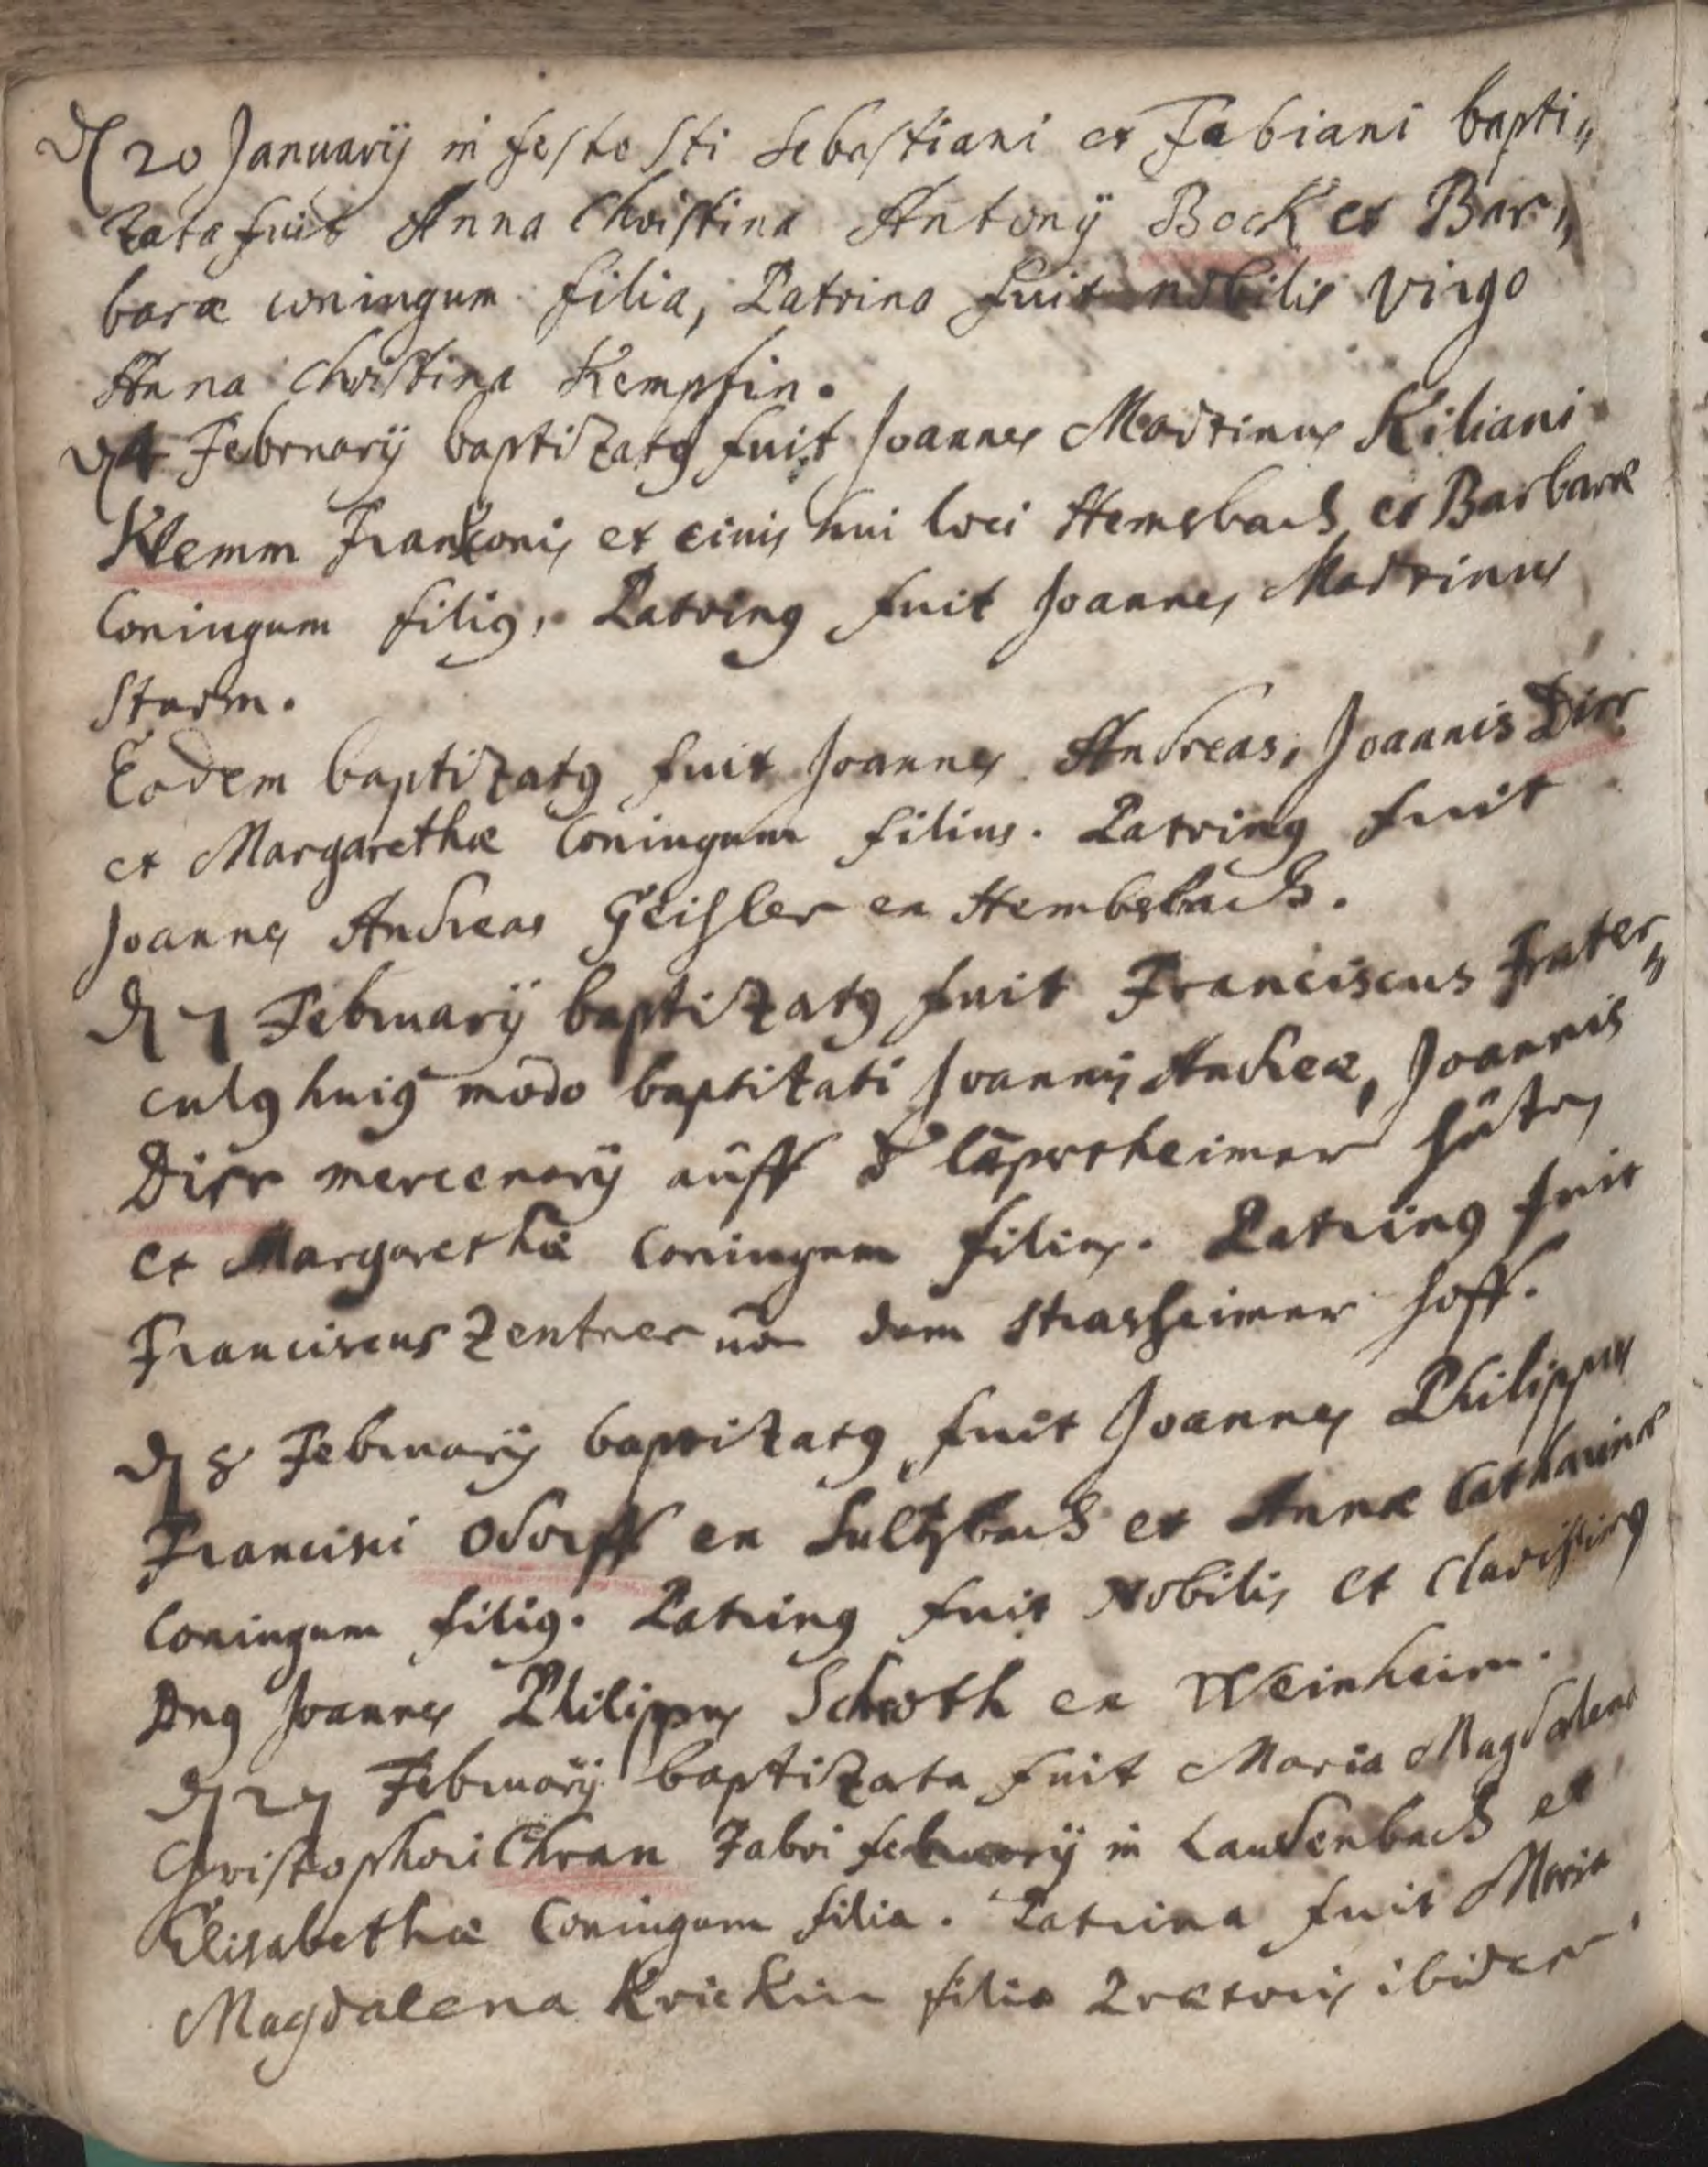 d 20 Januarij in festo Sti Sebastiani et Fabiani bapti„
zata fuit Anna Christina Antonij Bock et Bar„
baræ coniugum filia, Patrina fuit nobilis virgo
Anna Christina Kempfin.
d 4 Februarij baptizatꝯ fuit Joannes Martinus Kiliani
Klemm Franconis et civis hui loci Hemsbach et Barbaræ
Coniugum filiꝯ, Patrinꝯ fuit Joannes Martinus
Sturm.
Eodem baptizatꝯ fuit Joannes Andreas, Joannis Dirr
et Margarethæ Coniugum filius. Patrinꝯ fuit
Joannes Andreas Geisler ex Hembsbach.
d 7 Februarij baptizatꝯ fuit Franciscus frater„
culꝯ huiꝯ modo baptizati Joannis Andreæ, Joannis
Dirr mercenarij auff d hütten
et Margarethæ Coniugum filius. Patrinꝯ fuit
Franciscus Zentner von dem Strasheimer hoff.
d 8 Februarij baptizatꝯ fuit Joannes Philippus
Francisci Odorff ex Sultzbach et Annæ Catharinæ
Coniugum filiꝯ. Patrinꝯ fuit Nobilis et Clarissimꝯ
Dnꝯ Joannes Philippus Schroth ex Weinheim.
d 27 Februarij baptizata fuit Maria Magdalena
Christophori Chran Fabri in Laudenbach et
Elisabethæ Coniugum filia. Patrina fuit Maria
Magdalena Krickin filia Prætoris ibidem.